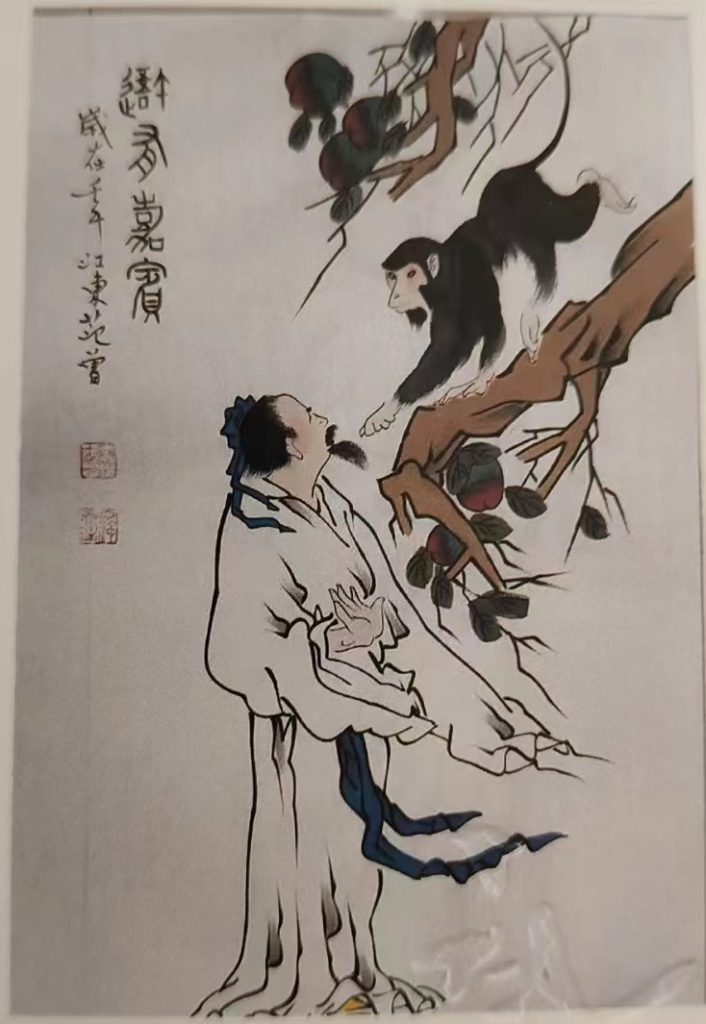 有嘉賓
歲在壬午江東范曾